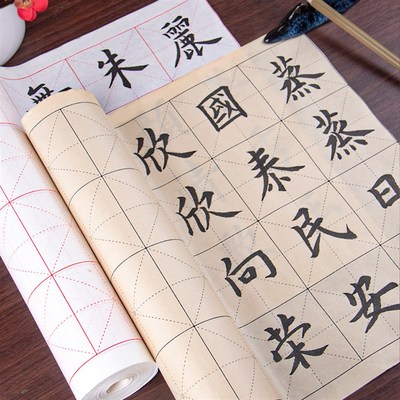 蒸蒸日
國泰民安
欣欣向荣
麗
朱